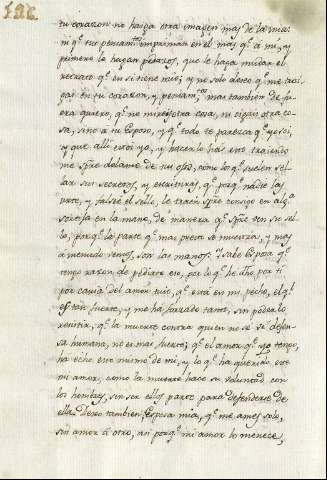 tu corazon no haiga otra imagen mas de la mia:
ni qͤ tus pensamᵗᵒˢ impriman en el mas qͤ a mi, y
primero le hagan pedazos, que le haga mudar el
retrato qͤ en si tiene mio; y no solo deseo qͤ me trai-
gas en tu corazon, y pensamᵗᵒˢ mas tambien de fu-
era quiero, qͤ no mires otra cosa, ni oigas otra co-
sa, sino a tu Esposo, y qͤ todo te parezca qͤ yo soi,
y que alli estoi yo, y hacerlo hás esto trayendo
me spͬe delante de tus ojos, como los qͤ suelen sel-
lar sus secretos, y escrituras, qͤ porqͤ nadie las
urte, y falsee el sello, le traen spͬe consigo en algͣ
sortija en la mano, de manera qͤ spͬe ven su se-
llo, porqͤ la parte qͤ mas presto se muestra, y mas
a menudo vemos, son las manos. Y sabe Esposa qͤ
tengo razon de pedirte eso, por lo qͤ he dho por ti
por causa del amor tuio, qͤ está en mi pecho, el qͤ
es tan fuerte, y me ha forzado tanto, sin poderlo
resistir, qͤ la muerte contra quien no se sé defen-
sa humana, no es mas fuerte, qͤ el amor qͤ yo tengo,
ha echo este mismo de mi, y lo qͤ ha querido este
mi amor, como la muerte hace su voluntad con
los hombres, sin ser ellos parte para defenderse de
ella. Deseo tambien Esposa mia, qͤ me ames solo,
sin amor á otro, asi porqͤ mi amor lo merece,